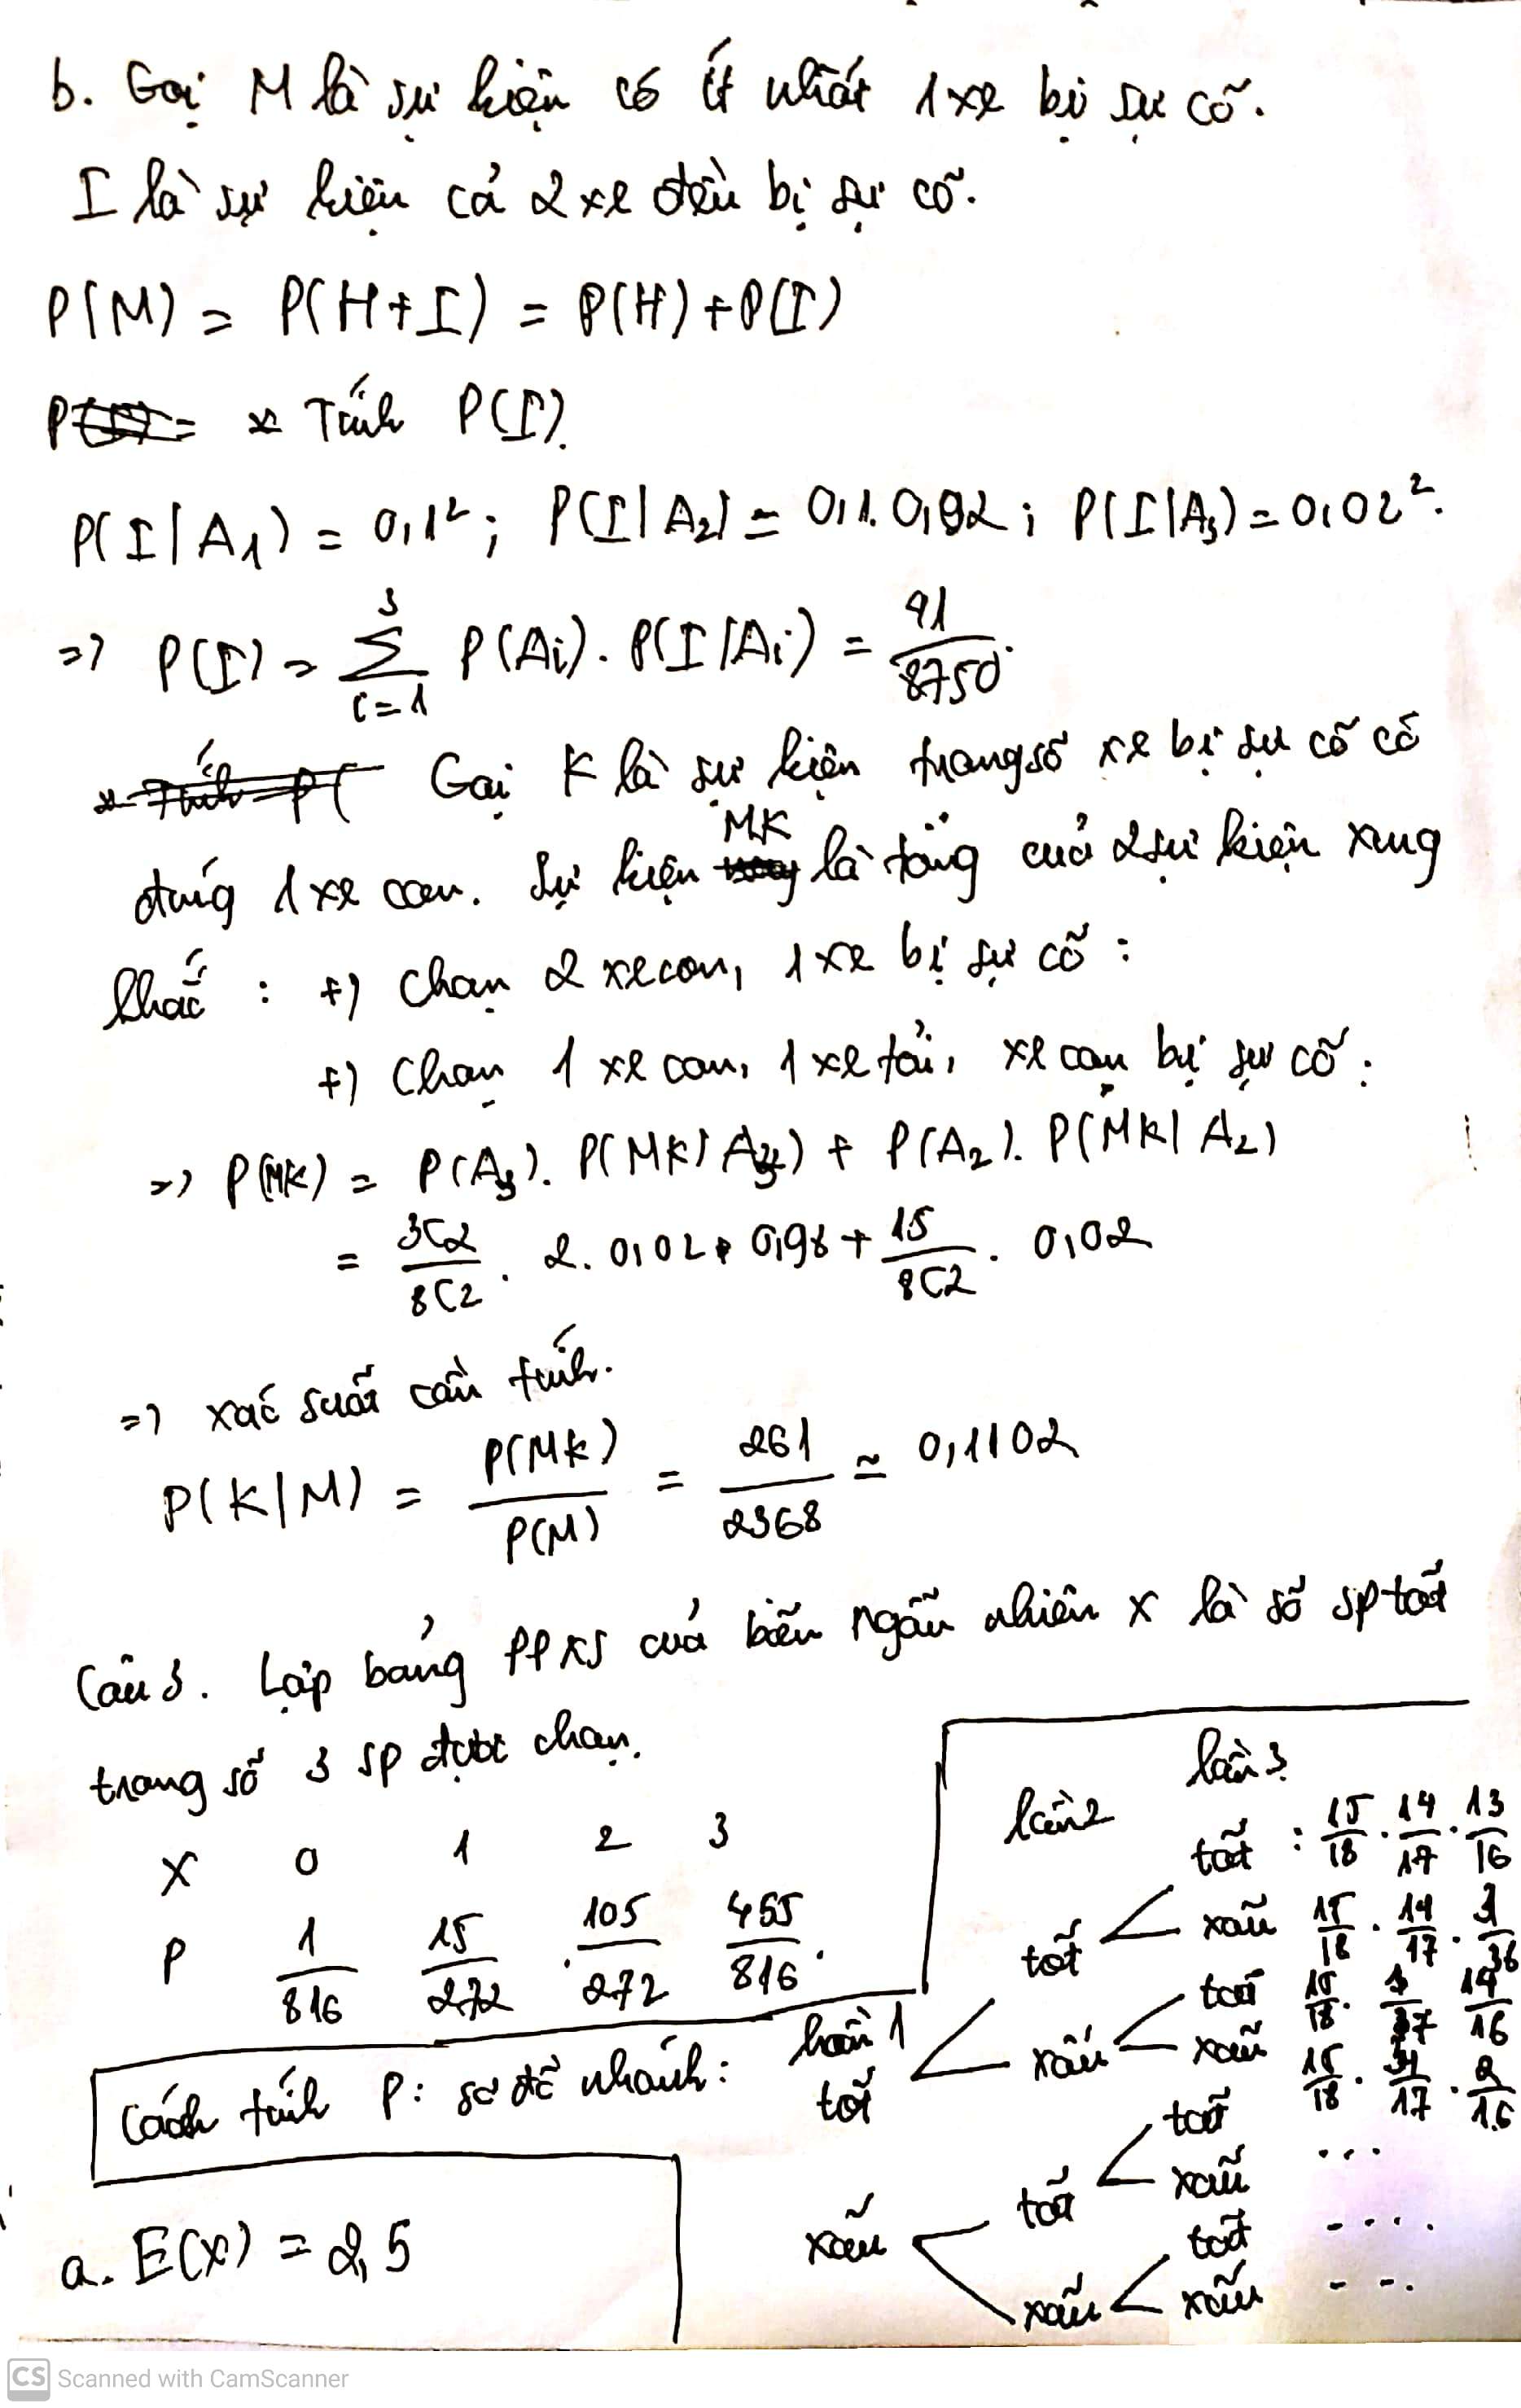 b. Gọi M là sự kiện có ít nhất 1 xe bị sự cố.
I là sự kiện cả 2 xe đều bị sự cố.
P(M) = P(H+I) = P(H) + P(I)
* Tính P(I).
P(I|A₁) = 0,1²; P(I|A₂) = 0,1.0,02; P(I|A₃) = 0,02².
=> P(I) = 3 Σ i=1 P(Ai). P(I|Ai) = 91/8750.
Gọi K là sự kiện trong số xe bị sự cố có
MK
đúng 1 xe con. Sự kiện là tổng của 2 sự kiện xung
khắc : +) Chọn 2 xe con, 1 xe bị sự cố :
+) Chọn 1 xe con, 1 xe tải, xe con bị sự cố :
=> P(MK) = P(A₃). P(MK|A₃) + P(A₂). P(MK|A₂)
= 3C2/8C2 . 2. 0,02 . 0,98 + 15/8C2 . 0,02
=> xác suất cần tính.
P(K|M) = P(MK)/P(M) = 261/2368 ≃ 0,1102
Câu 3. Lập bảng PPXS của biến ngẫu nhiên X là số sp tốt
trong số 3 sp được chọn.
X 0 1 2 3
P 1/816 15/272 105/272 455/816.
Cách tính P: sơ đồ nhánh:
lần 1 lần 2 lần 3
tốt : 15/18 . 14/17 . 13/16
tốt xấu 15/18 . 14/17 . 3/16
tốt 15/18 . 3/17 14/16
tốt xấu xấu 15/18 . 3/17 . 2/16
tốt ...
tốt xấu
xấu tốt ....
xấu xấu ...
a. E(X) = 2,5
CS Scanned with CamScanner